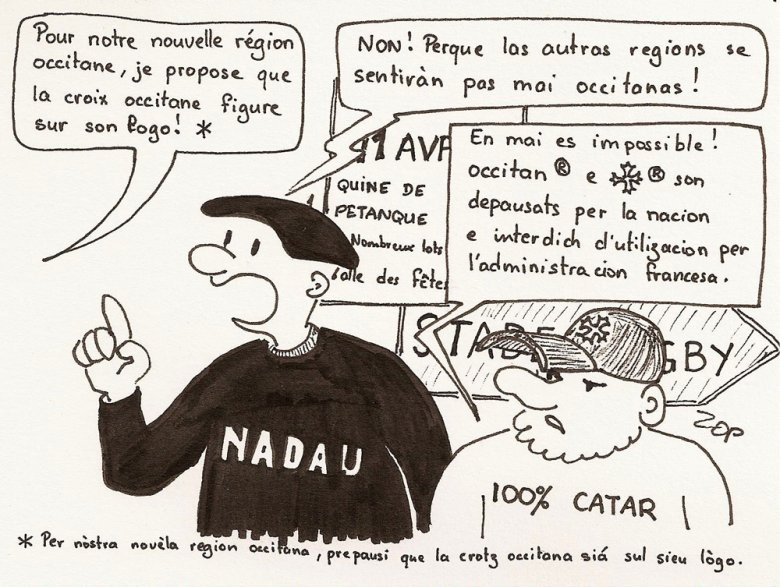 Pour notre nouvelle région
occitane, je propose que
la croix occitane figure
sur son logo! *
NON! Perque las autras regions se
sentiràn pas mai occitanas!
En mai es impossible!
occitan® e ® son
depausats per la nacion
e interdich d'utilizacion per
l'administracion francesa.
11 AVR
QUINE DE
PETANQUE
Nombreux lots
Salle des fêtes
STADE RUGBY
NADAU
100% CATAR
ZOP
* Per nòstra novèla region occitana, prepausi que la crotz occitana siá sul sieu lògo.